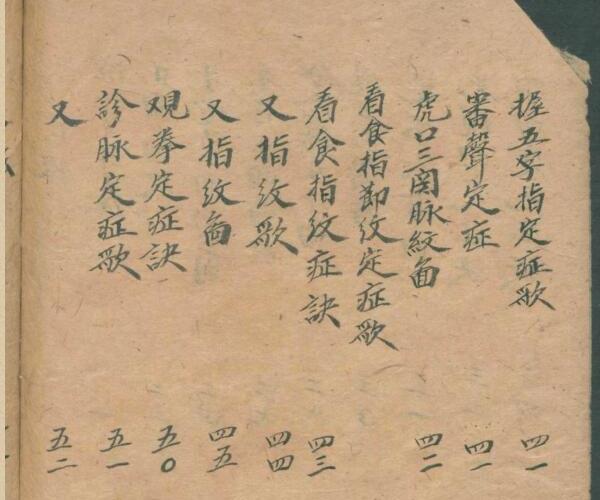 握五字指定症歌 四一
審聲定症 四一
虎口三図脉紋啚 四二
看食指節紋定症歌
看食指紋症訣 四三
又指纹歌 四四
又指纹啚 四五
观拳定症訣 五〇
診脉定症歌 五一
又 五二